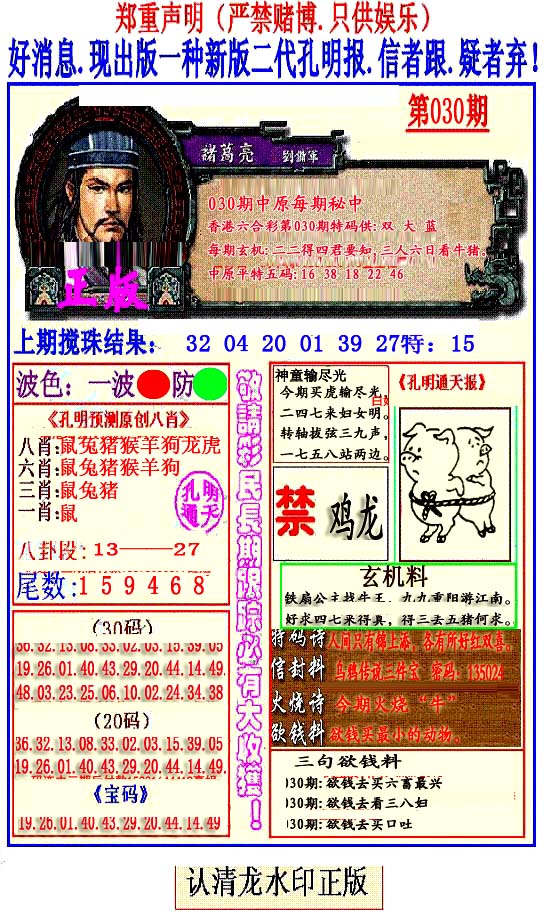 郑重声明（严禁赌博.只供娱乐）
好消息.现出版一种新版二代孔明报.信者跟.疑者弃!
第030期
諸葛亮 劉備軍
030期中原每期秘中
香港六合彩第030期特码供: 双 大 蓝
每期玄机: 二二得四君要知, 三人六日看牛猪。
中原平特五码: 16 38 18 22 46
正版
上期搅珠结果: 32 04 20 01 39 27特: 15
波色: 一波 防
《孔明预测原创八肖》
八肖:鼠兔猪猴羊狗龙虎
六肖:鼠兔猪猴羊狗
三肖:鼠兔猪
一肖:鼠
孔明通天
八卦段: 13——27
尾数: 1 5 9 4 6 8
(30码)
36.32.13.08.33.02.03.15.39.05
19.26.01.40.43.29.20.44.14.49
48.03.23.25.06.10.02.24.34.38
(20码)
36.32.13.08.33.02.03.15.39.05
19.26.01.40.43.29.20.44.14.49
《宝码》
19.26.01.40.43.29.20.44.14.49
敬請彩民長期跟踪必有大收獲!
神童输尽光
今期买虎输尽光,
二四七来妇女明。
转轴拔弦三九声,
一七五八站两边。
《孔明通天报》
禁 鸡龙
玄机料
铁扇公主找牛王, 九九重阳游江南。
好求四七来得真, 得三去五猪何求。
特码诗 人间只有锦上添, 各有所好红双喜。
信封料 乌鸦传说三件宝 密码: 135024
火烧诗 今期火烧“牛”
欲钱料 欲钱买最小的动物。
三句欲钱料
030期: 欲钱去买六畜最兴
030期: 欲钱去看三八妇
030期: 欲钱去买口吐
认清龙水印正版